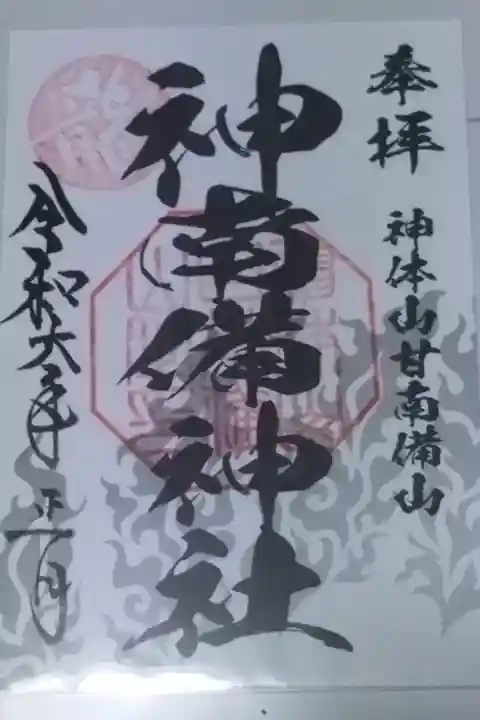 奉拝
神体山甘南備山
神南備神社
令和六年 正月
龍